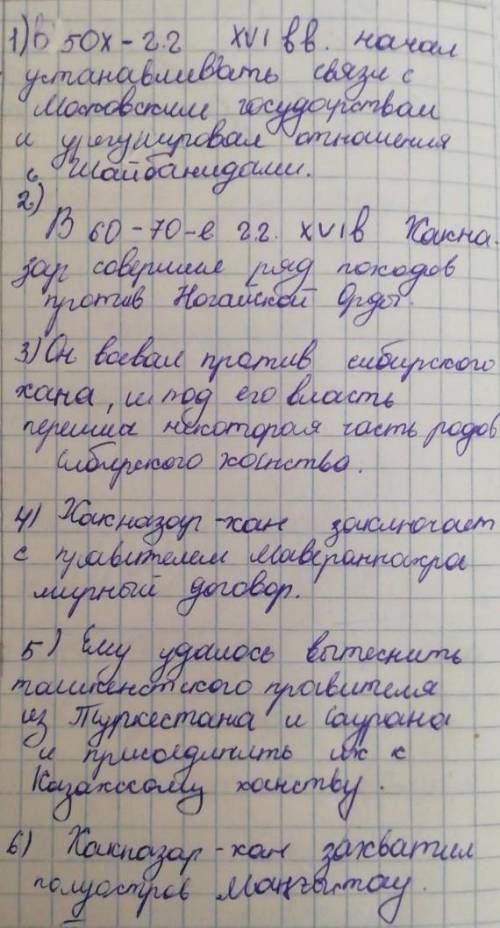 1) В 50х-г.г XVI вв. начал
устанавливать связи с
Московским государствам
и урегулировал отношения
с Шайбанидами.
2)
В 60-70-е г.г. XVI в Хакна-
зар совершил ряд походов
против Ногайской Орды.
3) Он воевал против сибирского
хана, и под его власть
перешла некоторая часть родов
Сибирского ханства.
4) Хакназар-хан заключает
с правителем Мавераннахра
мирный договор.
5) Ему удалось вытеснить
ташкентского правителя
из Туркестана и Саурана
и присоединить их к
Казахскому ханству.
6) Хакназар-хан захватил
полуостров Маңғыстау.